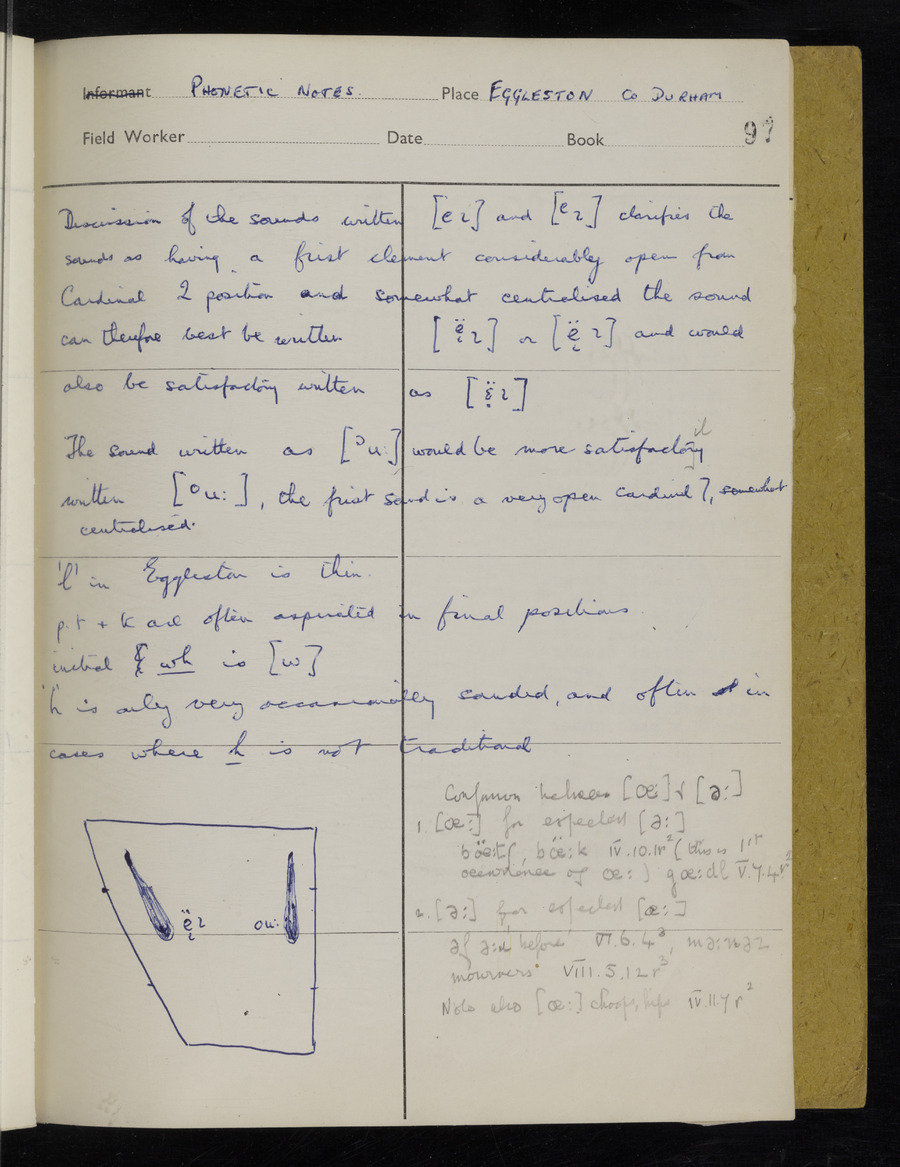 Informant PHONETIC NOTES. Place EGGLESTON Co DURHAM
Field Worker Date Book 97
Discussion of the sounds written [eɪ] and [eɪ] clarifies the
sounds as having a first element considerably open from
Cardinal 2 position and somewhat centralised the sound
can therefore best be written [ë̞ɪ] or [ë̞ɪ] and would
also be satisfactory written as [ɛ̝̈ɪ]
The sound written as [ᵓu:] would be more satisfactorily
written [ᵒu:], the first sound is a very open cardinal 7, somewhat
centralised.
'l' in Eggleston is thin.
p. t + k are often aspirated in final positions.
initial wh is [w]
'h' is only very occasionally sounded, and often in
cases where h is not traditional
Confusion between [œ:] & [ə:]
1 [œ:] for expected [ə:]
IV.10.1r² (this is 1st
occurrence of œ:) gœ:dl V.7.4r²
2. [ə:] for expected [œ:]
before VI.6.4³,
mourners VIII.5.12r³
Note also [œ:] IV.11.7r²
ë̞ɪ ou: